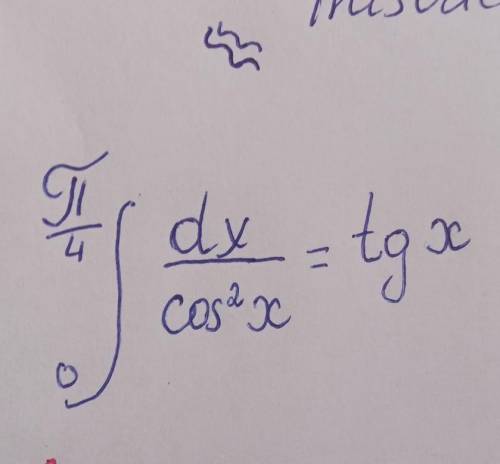 ∫₀^(π/4) dx/cos²x = tg x